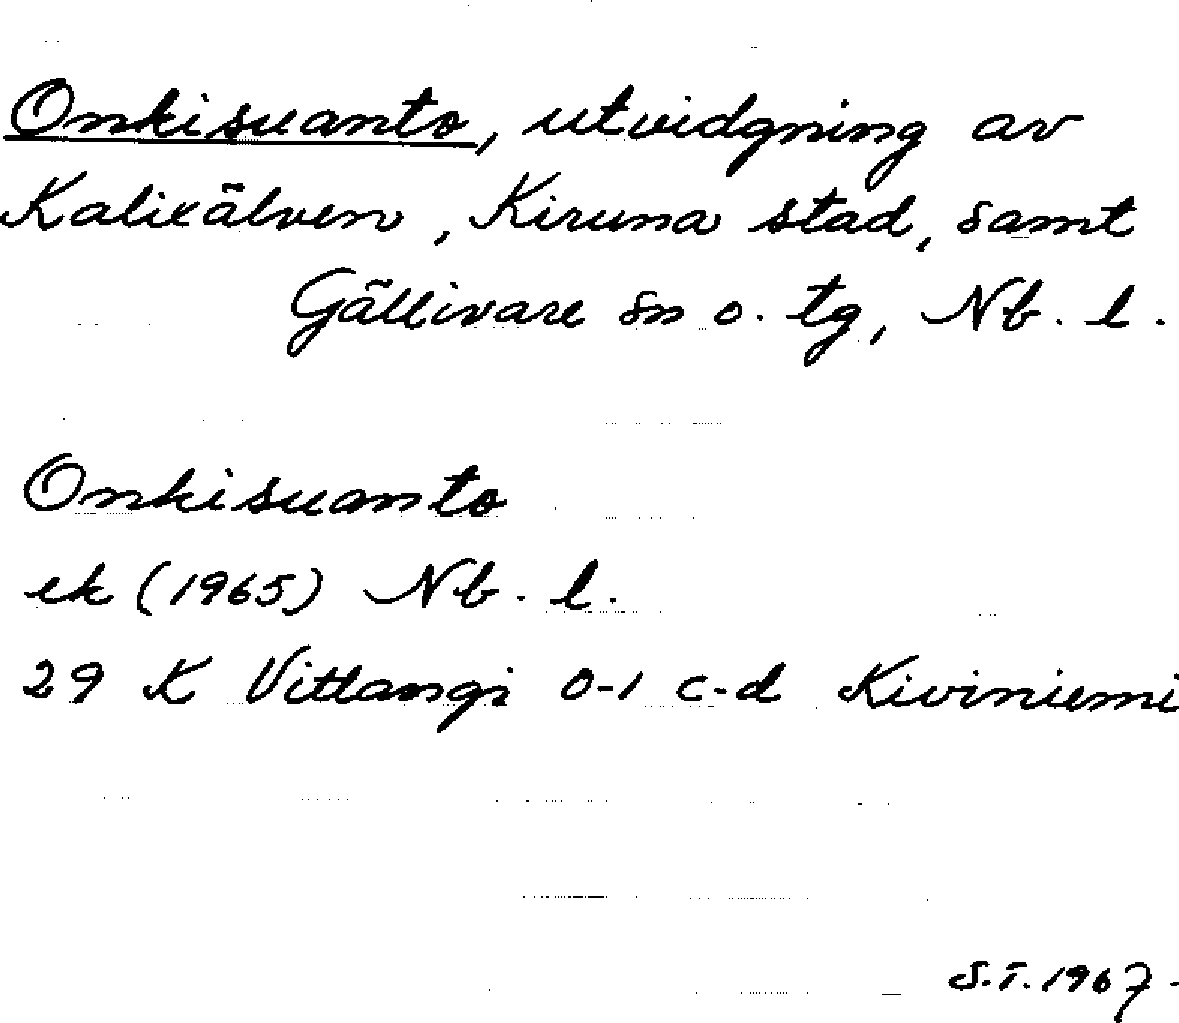 Onkisuanto, utvidgning av
Kalixälven, Kiruna stad, samt
Gällivare sn o. tg, Nb. l.
Onkisuanto
ek (1965) Nb. l.
29 K Vittangi 0-1 c-d Kiviniemi
S.T. 1967.